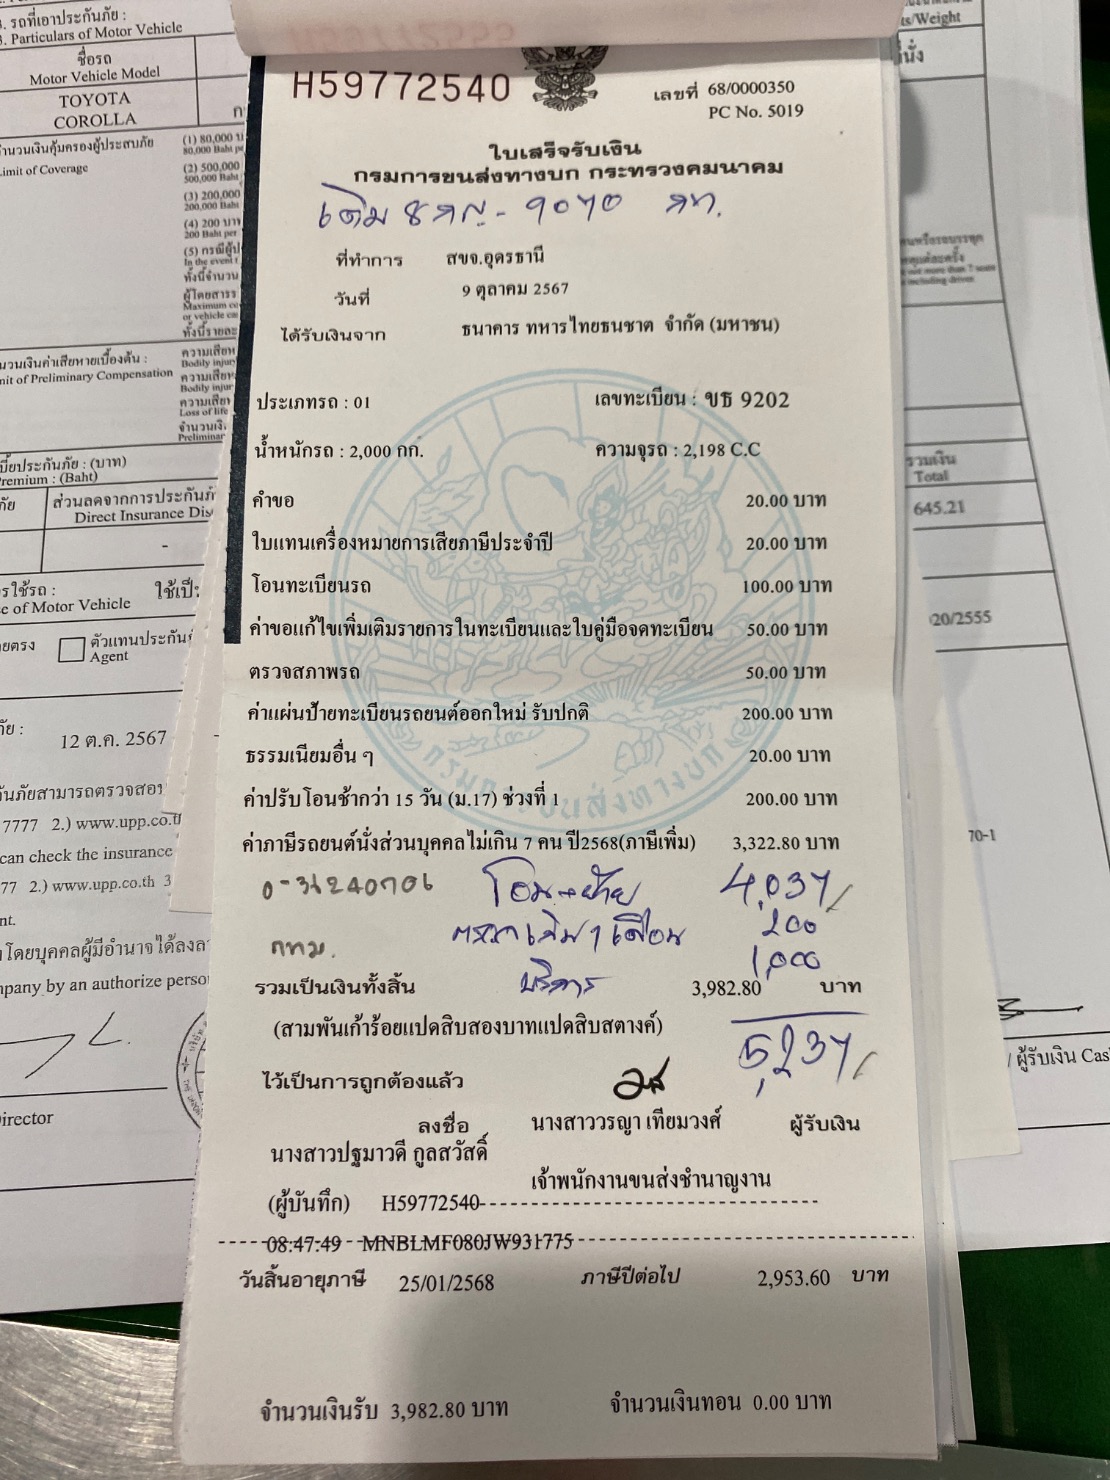 3. รถที่เอาประกันภัย :
3. Particulars of Motor Vehicle
ชื่อรถ
Motor Vehicle Model
TOYOTA
COROLLA
จำนวนเงินคุ้มครองผู้ประสบภัย
Limit of Coverage
(1) 80,000
80,000 Baht
(2) 500,000
500,000 Baht
(3) 200,000
200,000 Baht
(4) 200 บาท
200 Baht per
(5) กรณีผู้
In the event
ทั้งนี้จำนวน
ผู้โดยสารร
Maximum
or vehicle
ทั้งนี้ราย
จำนวนเงินค่าเสียหายเบื้องต้น :
Limit of Preliminary Compensation
ความเสีย
Bodily injury
ความเสีย
Bodily injur
ความเสีย
Loss of life
จำนวนเงิ
Preliminar
เบี้ยประกันภัย : (บาท)
Premium : (Baht)
ส่วนลดจากการประกันภั
Direct Insurance Dis
-
การใช้รถ :
ใช้เป็
Use of Motor Vehicle
ตัวแทนประกัน
Agent
12 ต.ค. 2567
กันภัยสามารถตรวจสอบ
7777 2.) www.upp.co.th
can check the insurance
77 2.) www.upp.co.th 3
โดยบุคคลผู้มีอำนาจได้ลงลา
mpany by an authorize person
Director
H59772540
เลขที่ 68/0000350
PC No. 5019
ใบเสร็จรับเงิน
กรมการขนส่งทางบก กระทรวงคมนาคม
เดิม 8กญ-9070 กท.
ที่ทำการ สขจ.อุดรธานี
วันที่ 9 ตุลาคม 2567
ได้รับเงินจาก ธนาคาร ทหารไทยธนชาต จำกัด (มหาชน)
ประเภทรถ : 01 เลขทะเบียน : ขธ 9202
น้ำหนักรถ : 2,000 กก. ความจุรถ : 2,198 C.C
คำขอ 20.00 บาท
ใบแทนเครื่องหมายการเสียภาษีประจำปี 20.00 บาท
โอนทะเบียนรถ 100.00 บาท
ค่าขอแก้ไขเพิ่มเติมรายการในทะเบียนและใบคู่มือจดทะเบียน 50.00 บาท
ตรวจสภาพรถ 50.00 บาท
ค่าแผ่นป้ายทะเบียนรถยนต์ออกใหม่ รับปกติ 200.00 บาท
ธรรมเนียมอื่น ๆ 20.00 บาท
กรมการขนส่งทางบก
ค่าปรับโอนช้ากว่า 15 วัน (ม.17) ช่วงที่ 1 200.00 บาท
ค่าภาษีรถยนต์นั่งส่วนบุคคลไม่เกิน 7 คน ปี2568(ภาษีเพิ่ม) 3,322.80 บาท
โอน+ย้าย 4,037
200
กทม. บริการ 1,000
รวมเป็นเงินทั้งสิ้น 3,982.80 บาท
(สามพันเก้าร้อยแปดสิบสองบาทแปดสิบสตางค์) 5,237
ไว้เป็นการถูกต้องแล้ว
ลงชื่อ นางสาววรญา เทียมวงศ์ ผู้รับเงิน
นางสาวปฐมาวดี กูลสวัสดิ์
เจ้าพนักงานขนส่งชำนาญงาน
(ผู้บันทึก) H59772540
08:47:49 MNBLMF080JW931775
วันสิ้นอายุภาษี 25/01/2568 ภาษีปีต่อไป 2,953.60 บาท
จำนวนเงินรับ 3,982.80 บาท จำนวนเงินทอน 0.00 บาท
s/Weight
รวมเงิน
Total
645.21
20/2555
70-1
/ ผู้รับเงิน Cas